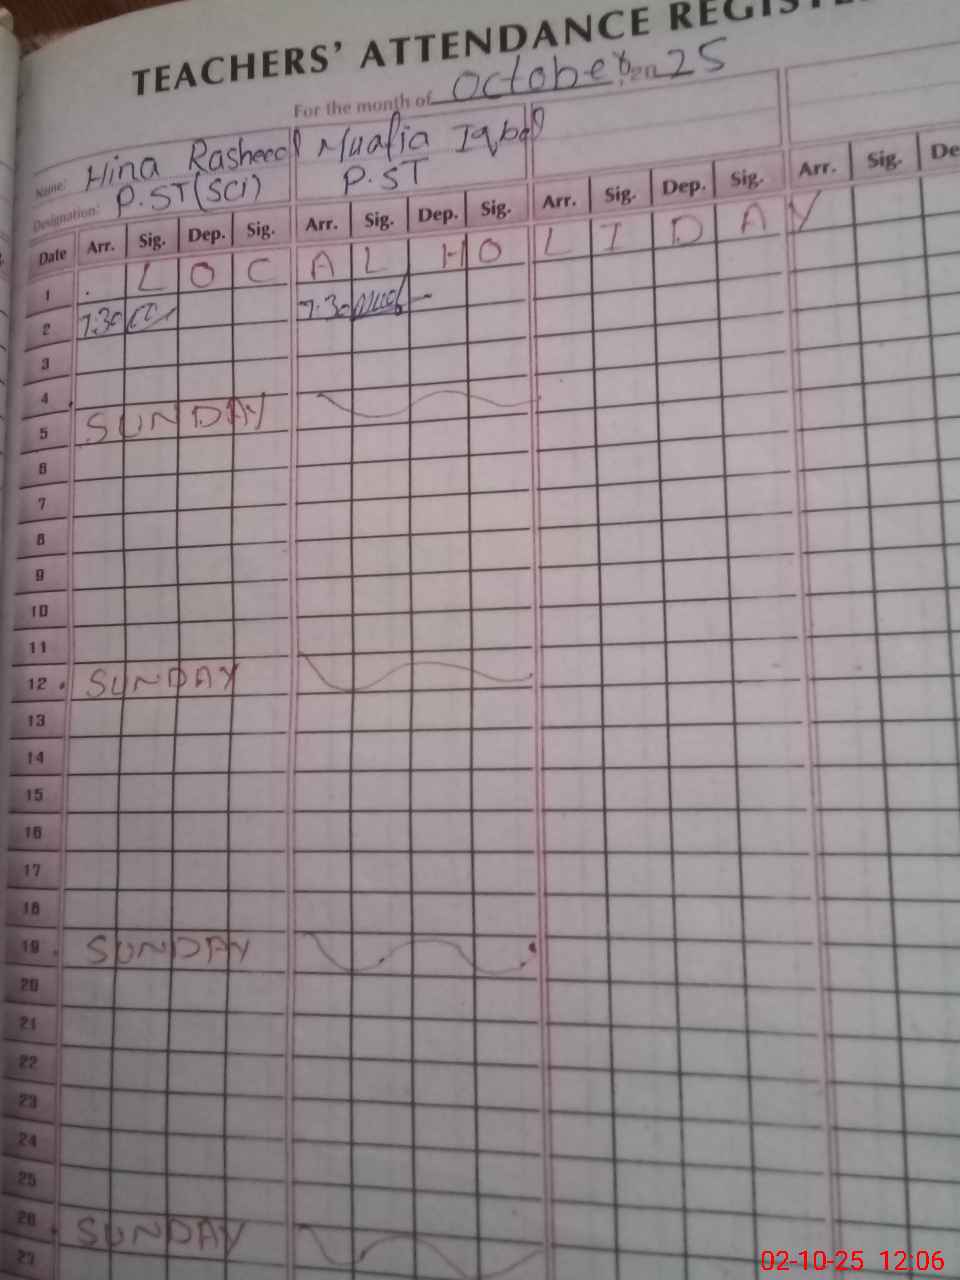 TEACHERS' ATTENDANCE REGISTE
For the month of October 25
Name: Hina Rasheed Mualia Iqbal
Designation: P.ST(SCI) P.ST
Date Arr. Sig. Dep. Sig. Arr. Sig. Dep. Sig. Arr. Sig. Dep. Sig. Arr. Sig. De
1 LOCAL HOLIDAY
2 7:30 7:30
3
4
5 SUNDAY
6
7
8
9
10
11
12 SUNDAY
13
14
15
16
17
18
19 SUNDAY
20
21
22
23
24
25
26 SUNDAY
27
02-10-25 12:06